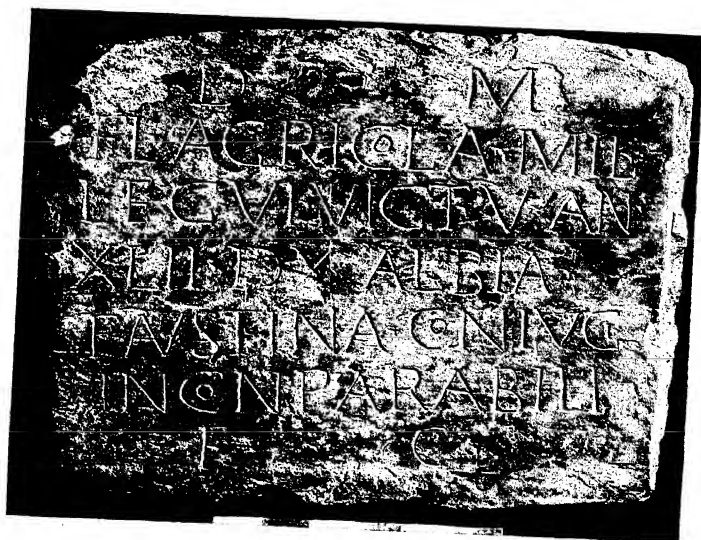 D M
FL AGRICOLA MIL
LEG VI VICT V AN
XLII D X ALBIA
FAVSTINA CONIVGI
INCONPARABILI
F C